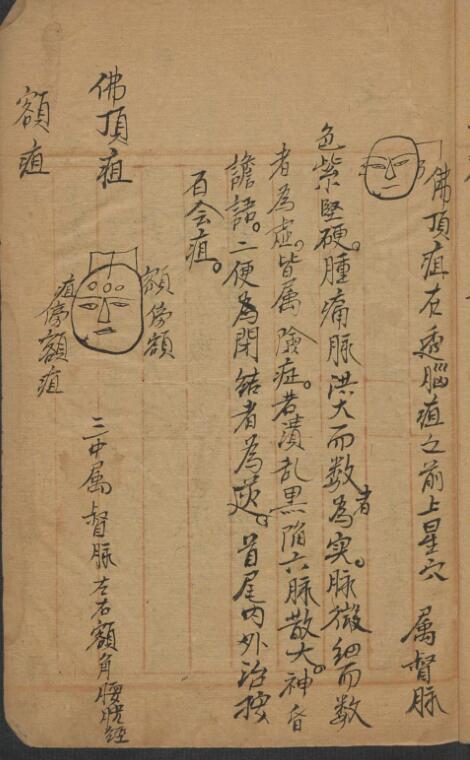 佛頂疽在透腦疽之前上星穴 属督脉
色紫堅硬。腫痛脉洪大而数者為实。脉微細而数
者為虚。皆属險症。若潰乱黑陷六脉散大。神昏
譫語。二便為閉結者為
首尾内外治按
百会疽。
佛頂疽
額傍額
疽傍額疽
三中属督脉左右額角
額疽